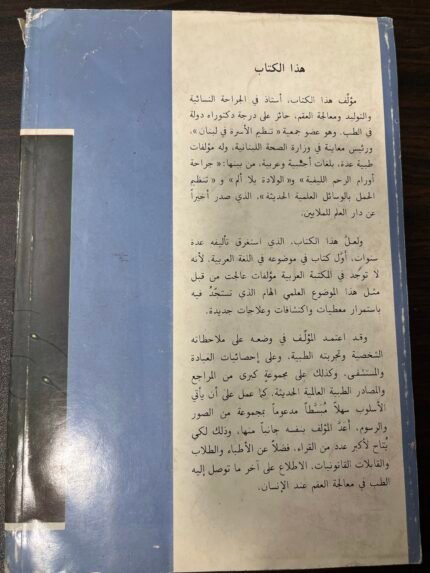 هذا الكتاب
مؤلّف هذا الكتاب، أستاذ في الجراحة النسائية
والتوليد ومعالجة العقم، حائز على درجة دكتوراه دولة
في الطب. وهو عضو جمعية « تنظيم الأسرة في لبنان »،
ورئيس معاينة في وزارة الصحة اللبنانية، وله مؤلفات
طبية عدة، بلغات أجنبية وعربية، من بينها: « جراحة
أورام الرحم الليفية » و« الولادة بلا ألم » و « تنظيم
الحمل بالوسائل العلمية الحديثة »، الذي صدر أخيراً
عن دار العلم للملايين.
ولعلّ هذا الكتاب، الذي استغرق تأليفه عدة
سنوات، أوّل كتاب في موضوعه في اللغة العربية. لأنه
لا توجَد في المكتبة العربية مؤلفات عالجت من قبل
مثل هذا الموضوع العلمي الهام الذي تستجَدُّ فيه
باستمرار معطيات واكتشافات وعلاجات جديدة.
وقد اعتمد المؤلّف في وضعه على ملاحظاته
الشخصية وتجربته الطبية، وعلى إحصائيات العيادة
والمستشفى، وكذلك على مجموعةٍ كبرى من المراجع
والمصادر الطبية العالمية الحديثة. كما عمل على أن يأتي
الأسلوب سهلاً مُبَسَّطاً مدعوماً بمجموعة من الصور
والرسوم، أعَدَّ المؤلف بنفسه جانباً منها، وذلك لكي
يُتاح لأكبر عدد من القراء، فضلاً عن الأطباء والطلاب
والقابلات القانونيات، الاطلاع على آخر ما توصل إليه
الطب في معالجة العقم عند الإنسان.